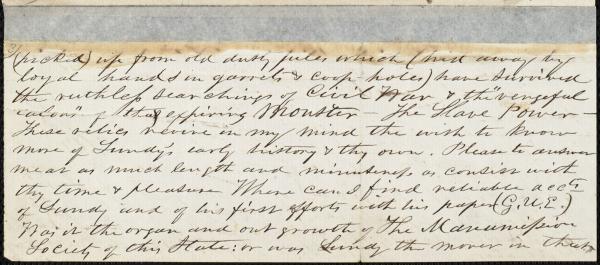 (picked) up from old dusty files which (hid away by
loyal hands in garrets & coop holes) have survived
the ruthless searchings of Civil War & the "vengeful
of the expiring Monster – The Slave Power –
These relics revive in my mind the wish to know
more of Lundy's early history & thy own. Please to answer
me at as much length and minuteness as consist with
thy time & pleasure Where can I find reliable accts
of Lundy and of his first efforts with his paper (G.U.E.)
Was it the organ and out growth of The Manumission
Society of this State: or was Lundy the mover in